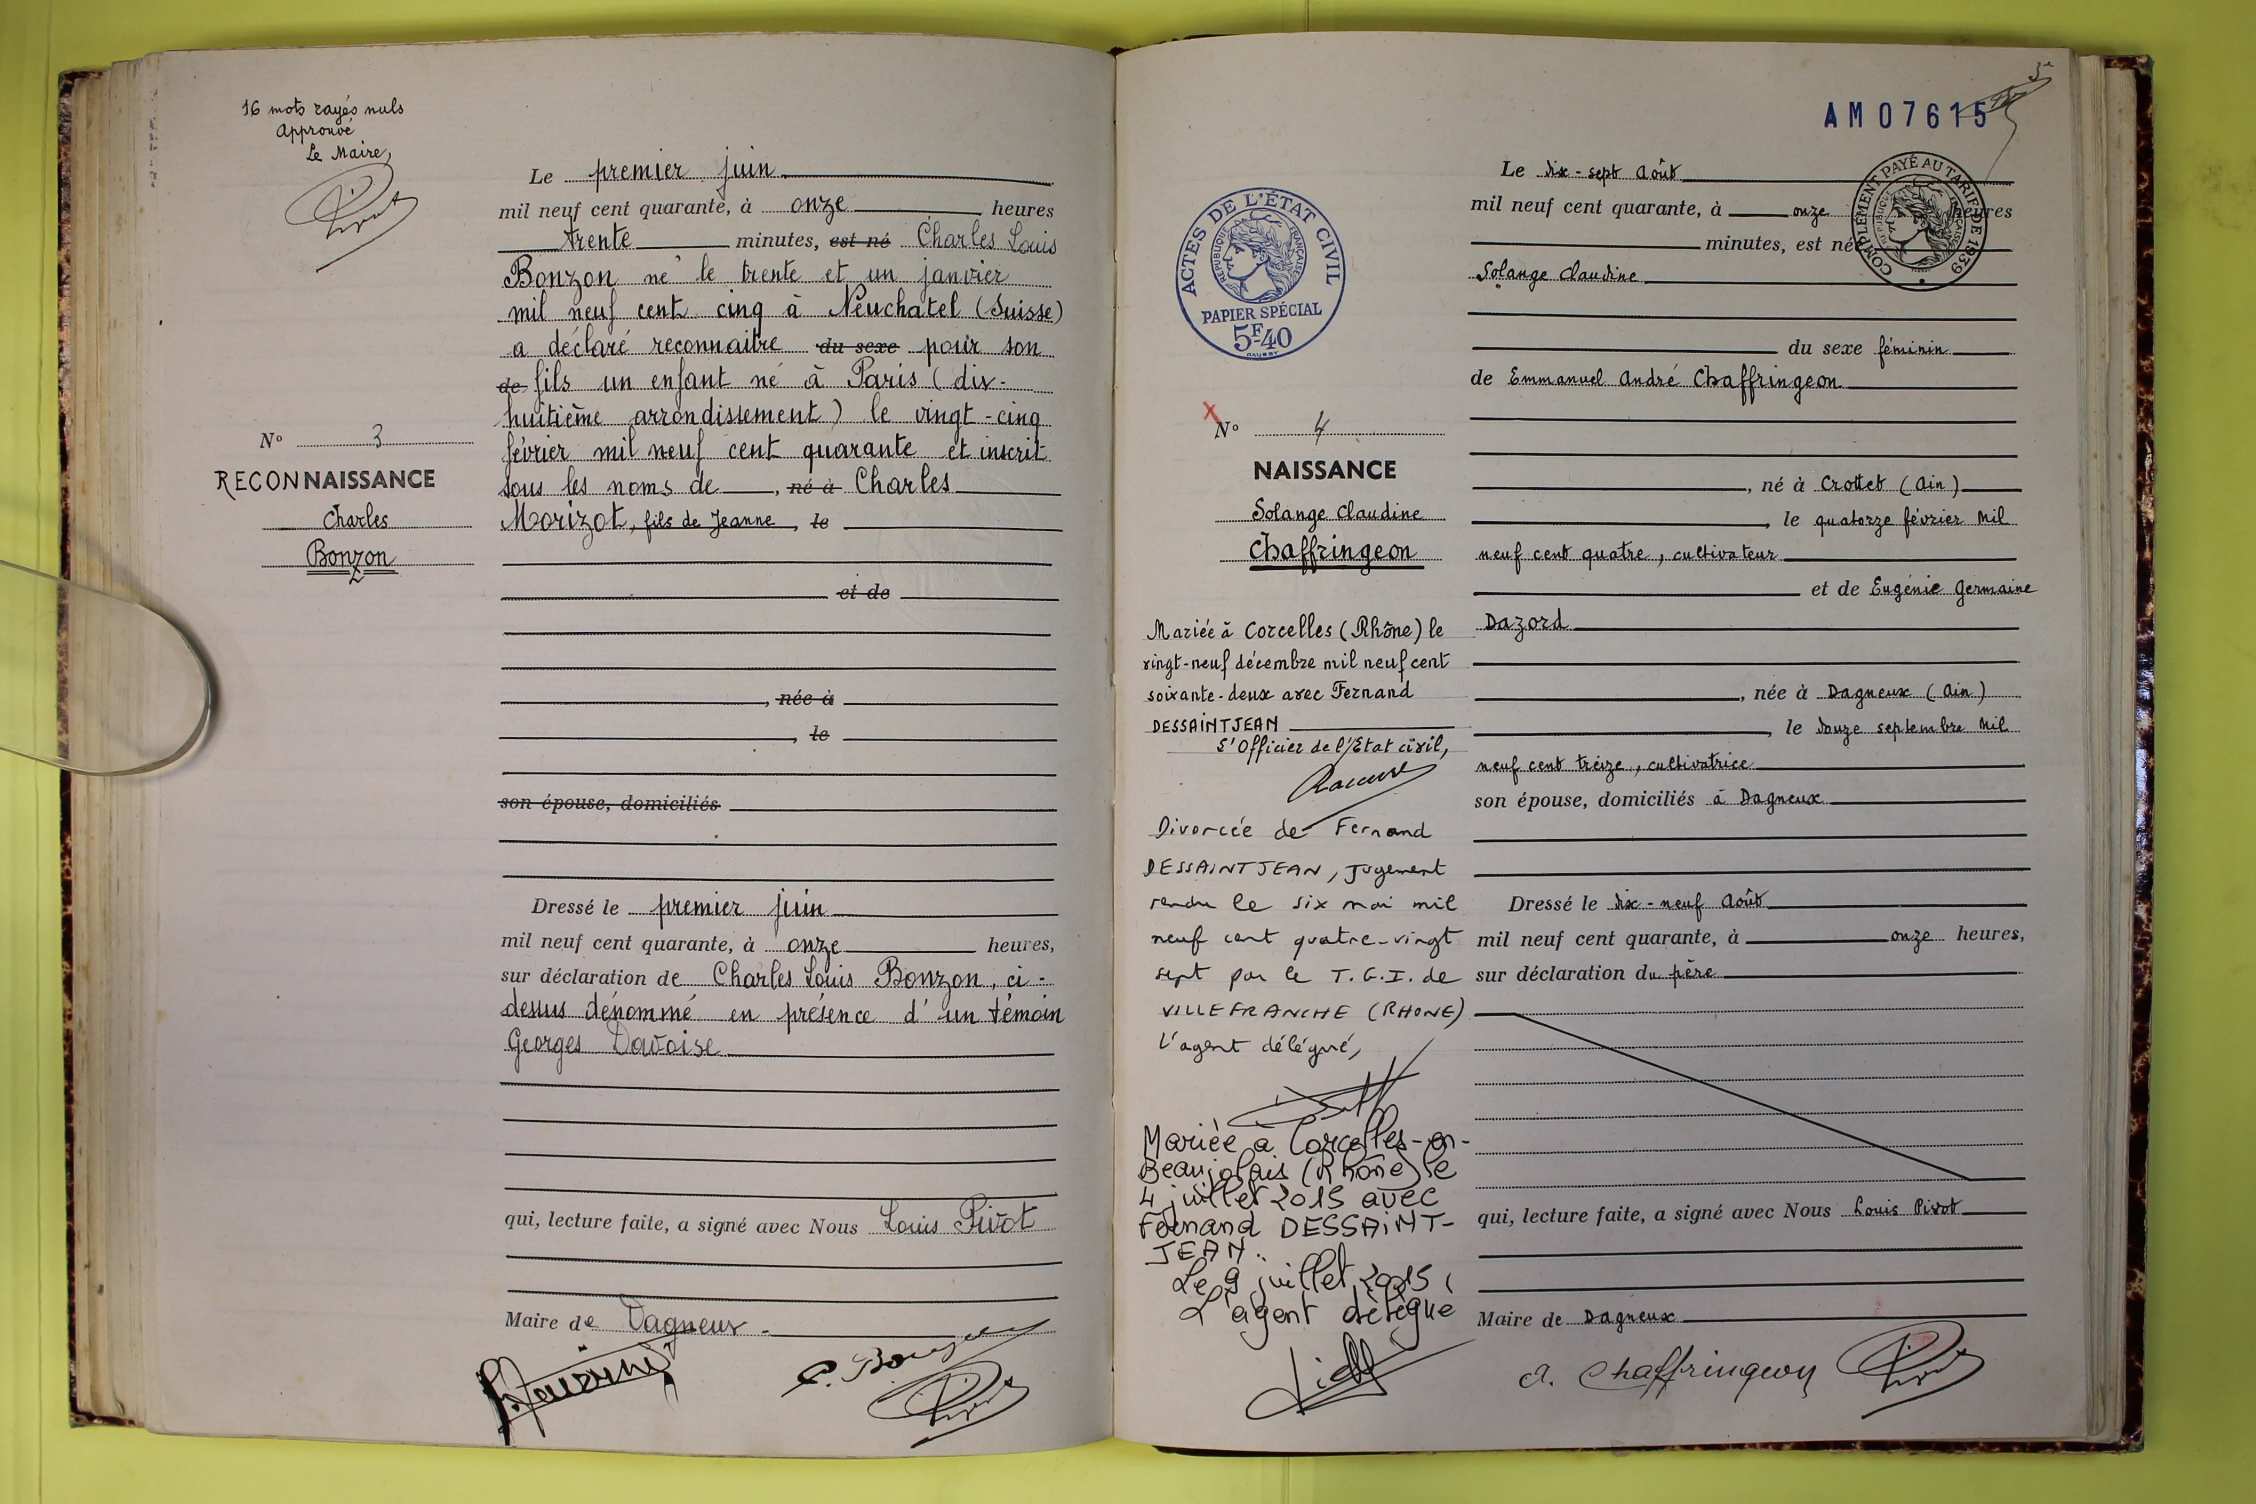 16 mots rayés nuls
Approuvé
Le Maire,
Pivot
Le premier juin
mil neuf cent quarante, à onze heures
trente minutes, est né Charles Louis
Bonzon né le trente et un janvier
mil neuf cent cinq à Neuchatel (Suisse)
a déclaré reconnaitre du sexe pour son
de fils un enfant né à Paris (dix-
huitième arrondissement) le vingt-cinq
février mil neuf cent quarante et inscrit
sous les noms de , né à Charles
Morizot, fils de Jeanne, le
et de
, née à
, le
son épouse, domiciliés
N° 3
RECONNAISSANCE
Charles
Bonzon
Dressé le premier juin
mil neuf cent quarante, à onze heures,
sur déclaration de Charles Louis Bonzon, ci-
dessus dénommé en présence d'un témoin
Georges Davoise
qui, lecture faite, a signé avec Nous Louis Pivot
Maire de Dagneux
C. Bonzon
Pivot
3e
AM07615
COMPLÉMENT PAYÉ AU TARIF DE 1939
RÉPUBLIQUE FRANÇAISE
ACTES DE L'ÉTAT CIVIL
RÉPUBLIQUE FRANÇAISE
PAPIER SPÉCIAL
5F40
Le dix-sept Août
mil neuf cent quarante, à onze heures
minutes, est né
Solange Claudine
du sexe féminin
de Emmanuel André Chaffringeon
, né à Crottet (Ain)
, le quatorze février mil
neuf cent quatre, cultivateur
et de Eugénie Germaine
Dazord
, née à Dagneux (Ain)
, le douze septembre mil
neuf cent treize, cultivatrice
son épouse, domiciliés à Dagneux
Dressé le dix-neuf Août
mil neuf cent quarante, à onze heures,
sur déclaration du père
qui, lecture faite, a signé avec Nous Louis Pivot
Maire de Dagneux
A. Chaffringeon
Pivot
N° 4
NAISSANCE
Solange Claudine
Chaffringeon
Mariée à Corcelles (Rhône) le
vingt-neuf décembre mil neuf cent
soixante-deux avec Fernand
DESSAINTJEAN
L'Officier de l'Etat civil,
Divorcée de Fernand
DESSAINTJEAN, jugement
rendu le six mai mil
neuf cent quatre-vingt
sept par le T.G.I. de
VILLEFRANCHE (RHONE)
L'agent délégué,
Mariée à Corcelles-en-
Beaujolais (Rhône) le
4 juillet 2015 avec
Fernand DESSAINT-
JEAN.
Le 9 juillet 2015,
L'agent délégué